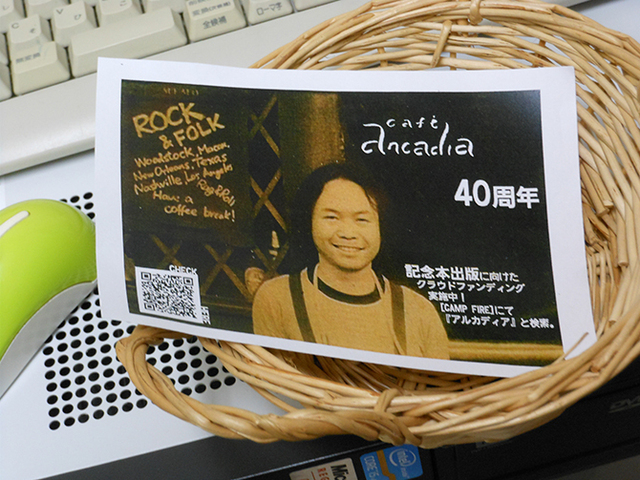 ROCK
& FOLK
Woodstock, Macon,
New Orleans, Texas
Nashville Los Angeles
Have a
coffee break!
CHECK
café
arcadia
40周年
記念本出版に向けた
クラウドファンディング
実施中！
[CAMP FIRE]にて
『アルカディア』と検索。
全候補
ローマ字
intel
CORE i5
DVD